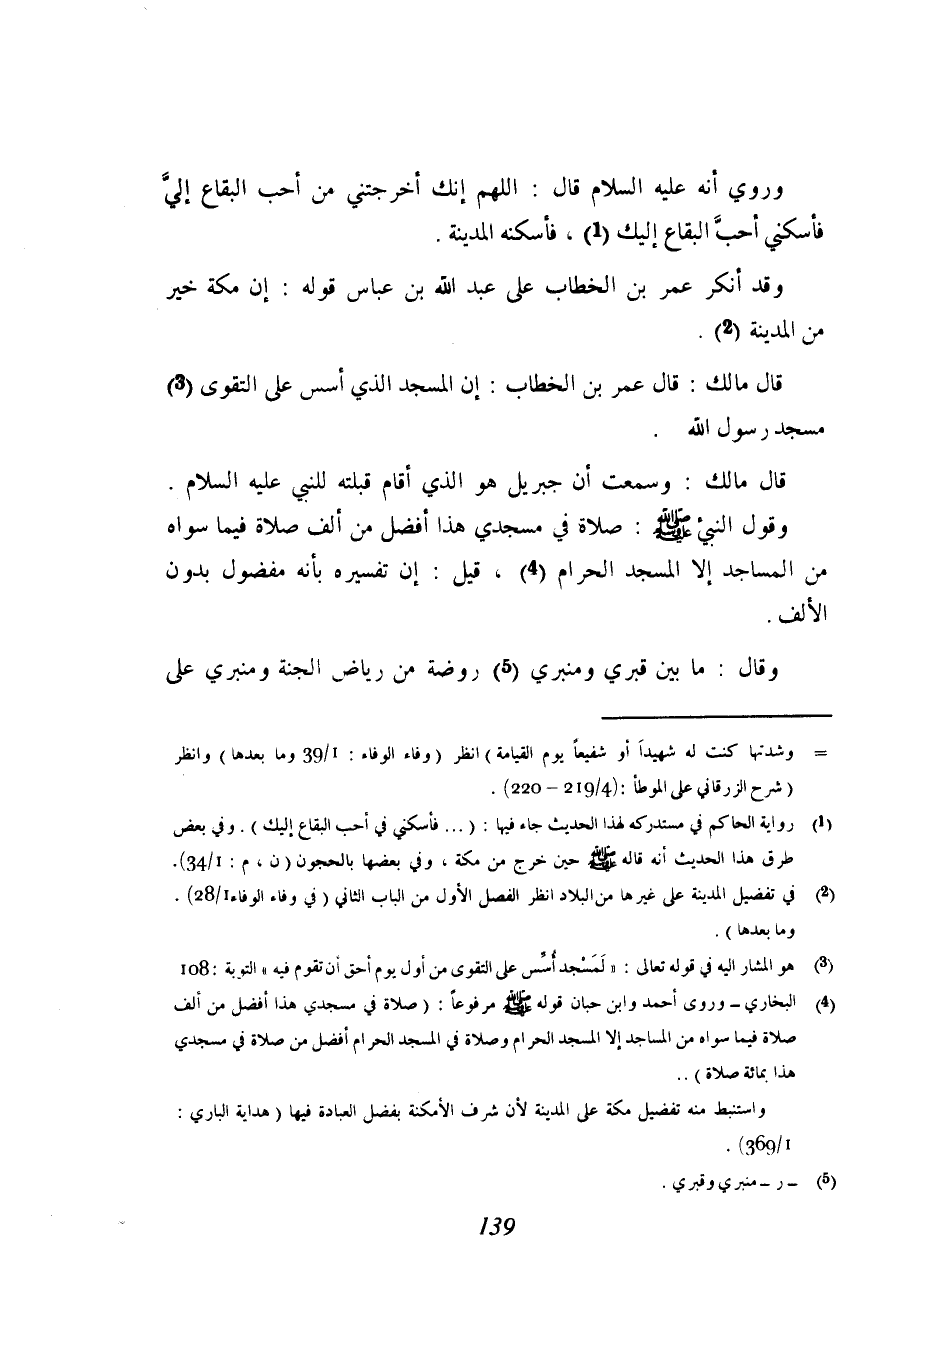 وروي أنه عليه السلام قال : اللهم إنك أخرجتني من أحب البقاع إليَّ
فأسكني أحبَّ البقاع إليك (1) ، فأسكنه المدينة .
وقد أنكر عمر بن الخطاب على عبد الله بن عباس قوله : إن مكة خير
من المدينة (2) .
قال مالك : قال عمر بن الخطاب : إن المسجد الذي أسس على التقوى (3)
مسجد رسول الله .
قال مالك : وسمعت أن جبريل هو الذي أقام قبلته للنبي عليه السلام .
وقول النبيْ ﷺ : صلاة في مسجدي هذا أفضل من ألف صلاة فيما سواه
من المساجد إلا المسجد الحرام (4) ، قيل : إن تفسيره بأنه مفضول بدون
الألف .
وقال : ما بين قبري ومنبري (5) روضة من رياض الجنة ومنبري على
= وشدتها كنت له شهيداً أو شفيعاً يوم القيامة ) انظر ( وفاء الوفاء : 39/1 وما بعدها ) وانظر
( شرح الزرقاني على الموطأ : 219/4 – 220) .
(1) رواية الحاكم في مستدركه لهذا الحديث جاء فيها : ( ... فأسكني في أحب البقاع إليك ) . وفي بعض
طرق هذا الحديث أنه قاله ﷺ حين خرج من مكة ، وفي بعضها بالحجون ( ن ، م : 34/1).
(2) في تفضيل المدينة على غيرها من البلاد انظر الفصل الأول من الباب الثاني ( في وفاء الوفاء 28/1) .
وما بعدها ) .
(3) هو المشار اليه في قوله تعالى : « لَمَسْجد أُسِّس على التقوى من أول يوم أحق أن تقوم فيه » التوبة : 108
(4) البخاري – وروى أحمد وابن حبان قوله ﷺ مرفوعاً : ( صلاة في مسجدي هذا أفضل من ألف
صلاة فيما سواه من المساجد إلا المسجد الحرام وصلاة في المسجد الحرام أفضل من صلاة في مسجدي
هذا بمائة صلاة ) ..
واستنبط منه تفضيل مكة على المدينة لأن شرف الأمكنة بفضل العبادة فيها ( هداية الباري :
369/1) .
(5) – ر – منبري وقبري .
139